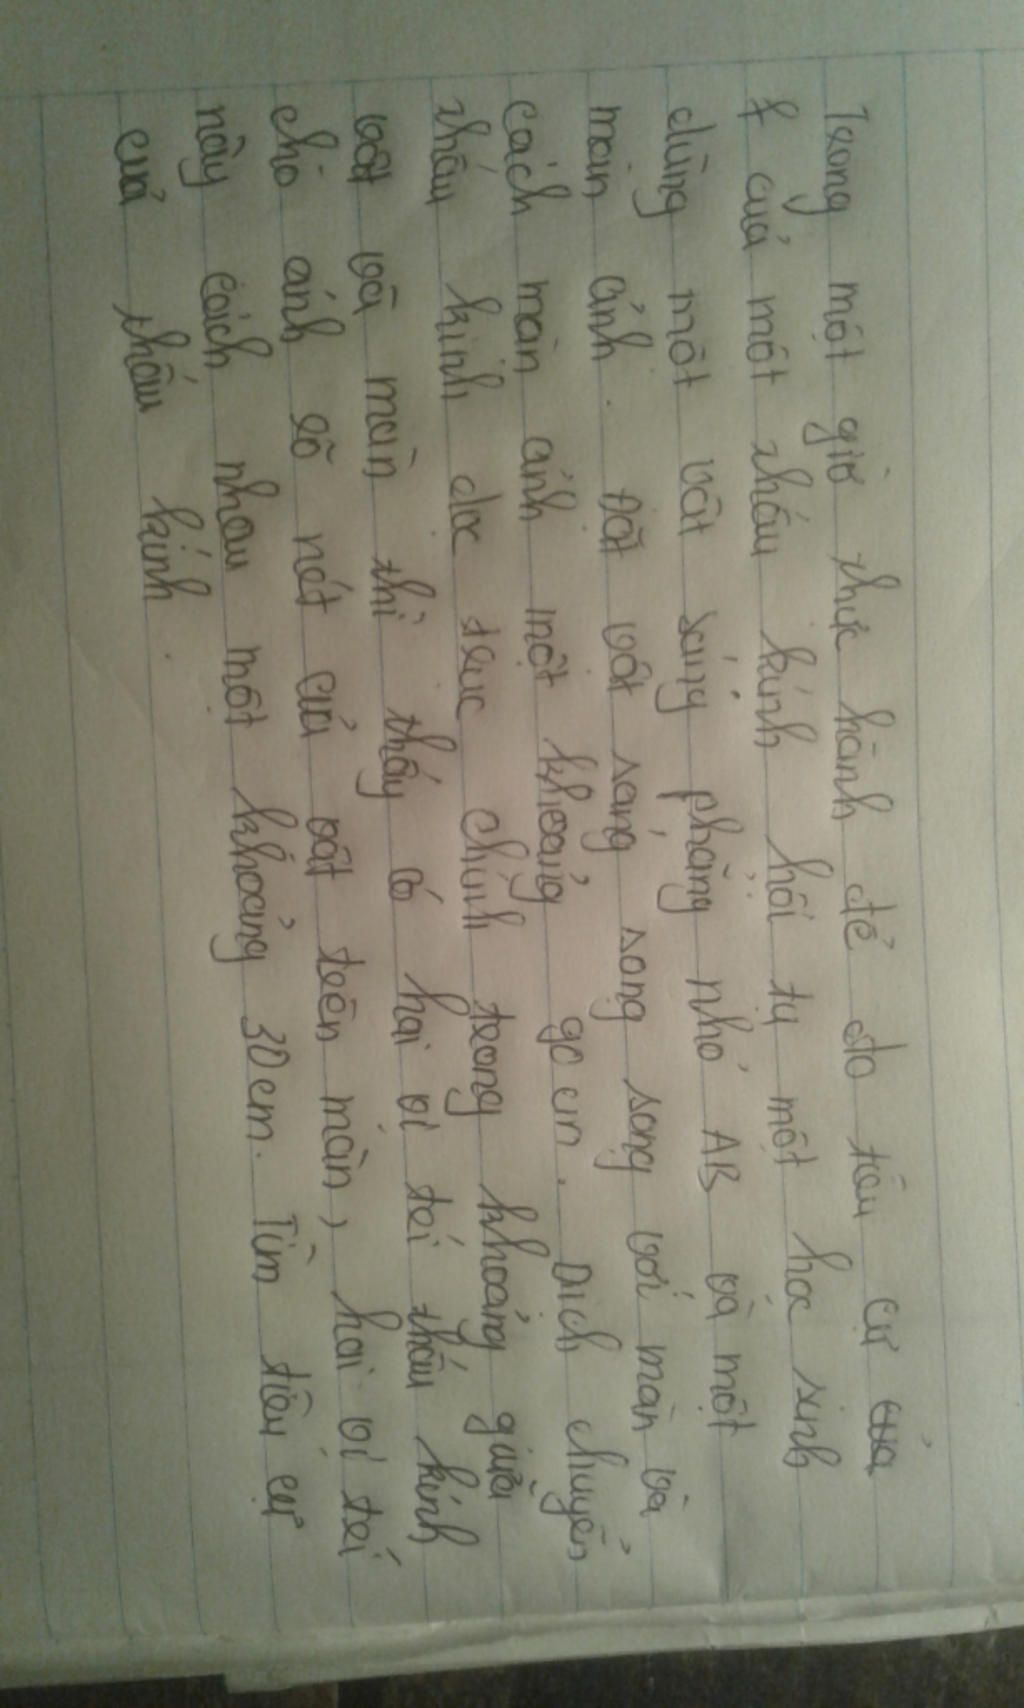 Trong một giờ thực hành để đo tiêu cự của
f của một thấu kính hội tụ một học sinh
dùng một vật sáng phẳng nhỏ AB và một
màn ảnh. Đặt vật sáng song song với màn và
cách màn ảnh một khoảng 90 cm. Dịch chuyển
thấu kính dọc trục chính trong khoảng giữa
vật và màn thì thấy có hai vị trí thấu kính
cho ảnh rõ nét của vật trên màn, hai vị trí
này cách nhau một khoảng 30 cm. Tìm tiêu cự
của thấu kính.